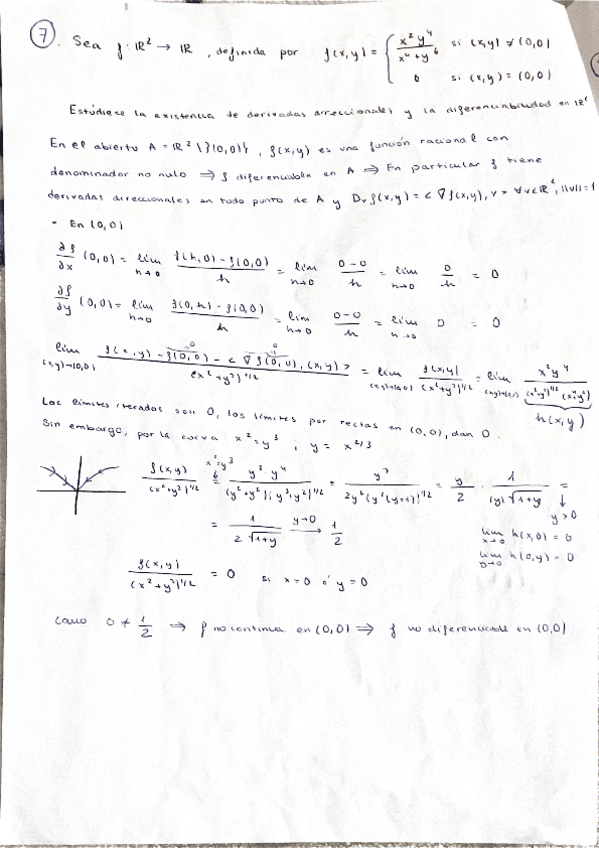 7. Sea f: ℝ² → ℝ, definida por f(x,y) = { x²y⁴ / (x⁴+y⁶) si (x,y) ≠ (0,0)
0 si (x,y) = (0,0)
Estúdiese la existencia de derivadas direccionales y la diferenciabilidad en ℝ²
En el abierto A = ℝ² \ {(0,0)}, f(x,y) es una función racional con
denominador no nulo ⇒ f diferenciable en A ⇒ En particular f tiene
derivadas direccionales en todo punto de A y Dᵥf(x,y) = < ∇f(x,y), v > ∀v∈ℝ², ||v||=1
- En (0,0)
∂f/∂x (0,0) = lim h→0 (f(h,0) - f(0,0))/h = lim h→0 (0-0)/h = lim h→0 0/h = 0
∂f/∂y (0,0) = lim h→0 (f(0,h) - f(0,0))/h = lim h→0 (0-0)/h = lim h→0 0 = 0
lim (x,y)→(0,0) (f(x,y) - f(0,0) - < ∇f(0,0), (x,y) >)/(x²+y²)^1/2 = lim (x,y)→(0,0) f(x,y)/(x²+y²)^1/2 = lim (x,y)→(0,0) x²y⁴/((x²+y²)^1/2 (x⁴+y⁶))
h(x,y)
Los límites iterados son 0, los límites por rectas en (0,0), dan 0.
Sin embargo, por la curva x² = y³ ; y = x^2/3
f(x,y)/(x²+y²)^1/2 = x²=y³ y³y⁴/((y⁶+y⁶)(y³+y²)^1/2) = y⁷/(2y⁶(y²(y+1))^1/2) = y/2 · 1/(|y|√(1+y)) =
y>0
= 1/(2√(1+y)) y→0 → 1/2
lim x→0 h(x,0) = 0
lim y→0 h(0,y) = 0
f(x,y)/(x²+y²)^1/2 = 0 si x=0 ó y=0
Como 0 ≠ 1/2 ⇒ f no continua en (0,0) ⇒ f no diferenciable en (0,0)